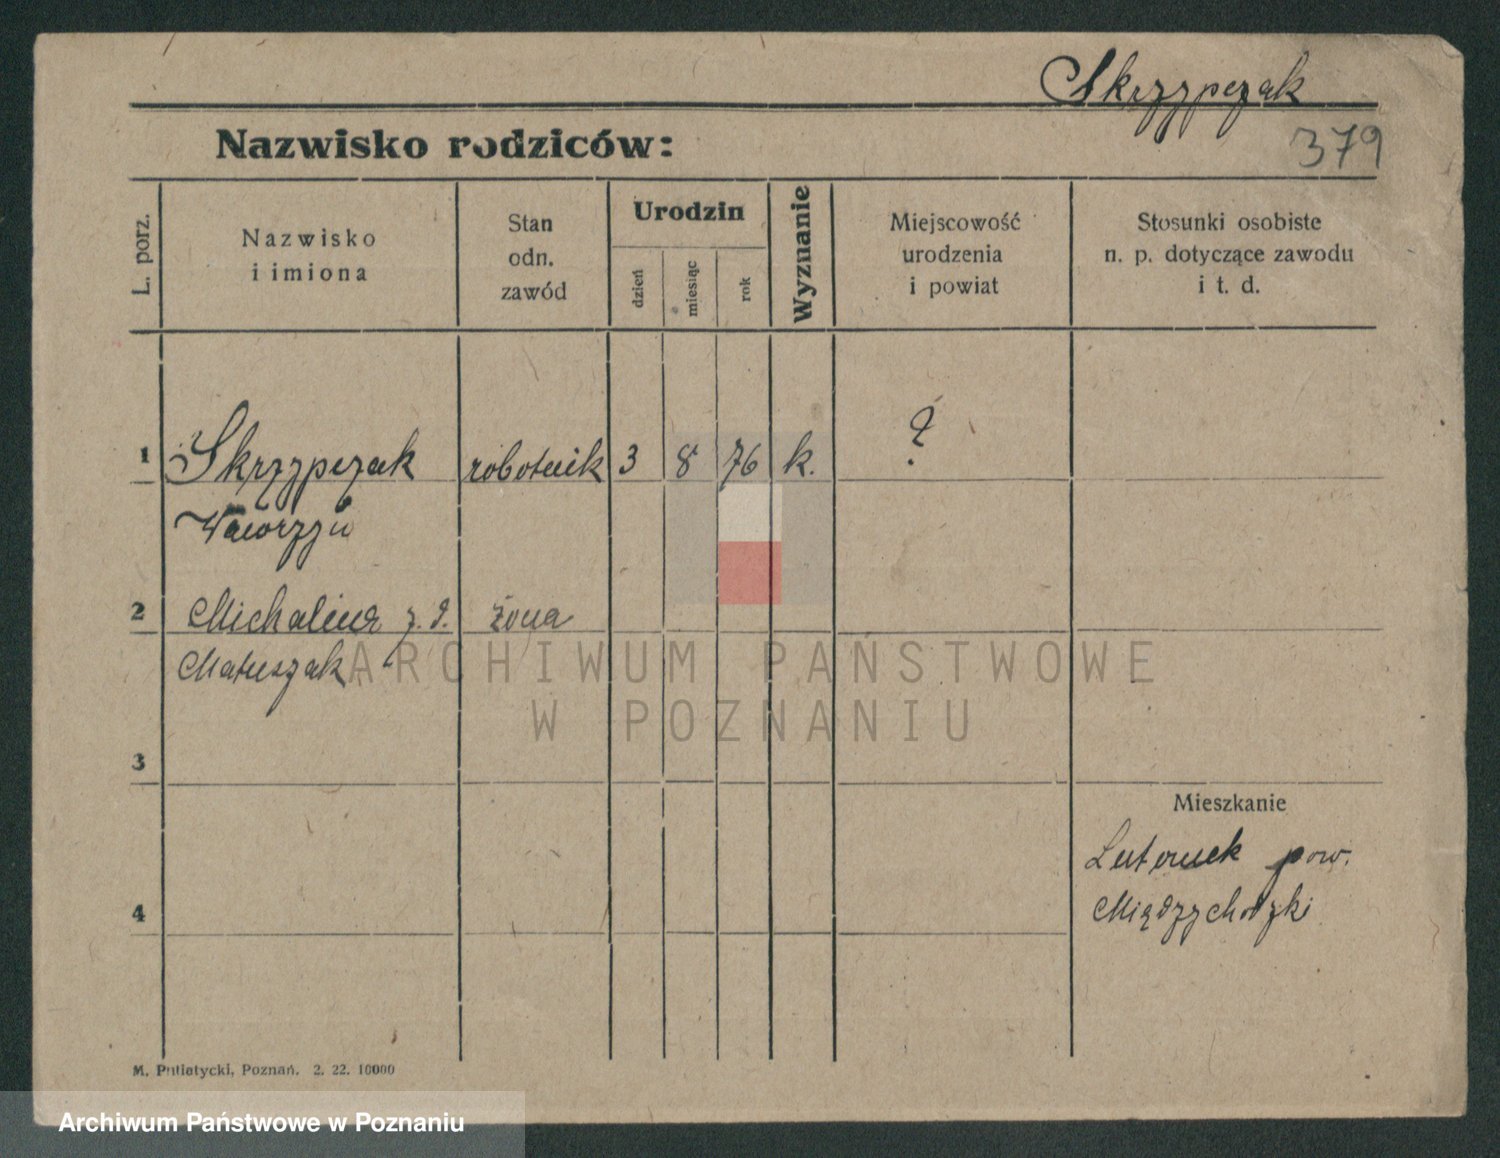 Skrzypczak
379
Nazwisko rodziców:
L. porz.
Nazwisko
i imiona
Stan
odn.
zawód
Urodzin
dzień
miesiąc
rok
Wyznanie
Miejscowość
urodzenia
i powiat
Stosunki osobiste
n. p. dotyczące zawodu
i t. d.
1 Skrzypczak robotnik 3 8 76 k. ?
Wawrzyn
2 Michalina z. d. żona
Matuszak
ARCHIWUM PAŃSTWOWE
W POZNANIU
3
Mieszkanie
Lutomek pow.
Międzychodzki
4
M. Putiatycki, Poznań. 2. 22. 10000
Archiwum Państwowe w Poznaniu